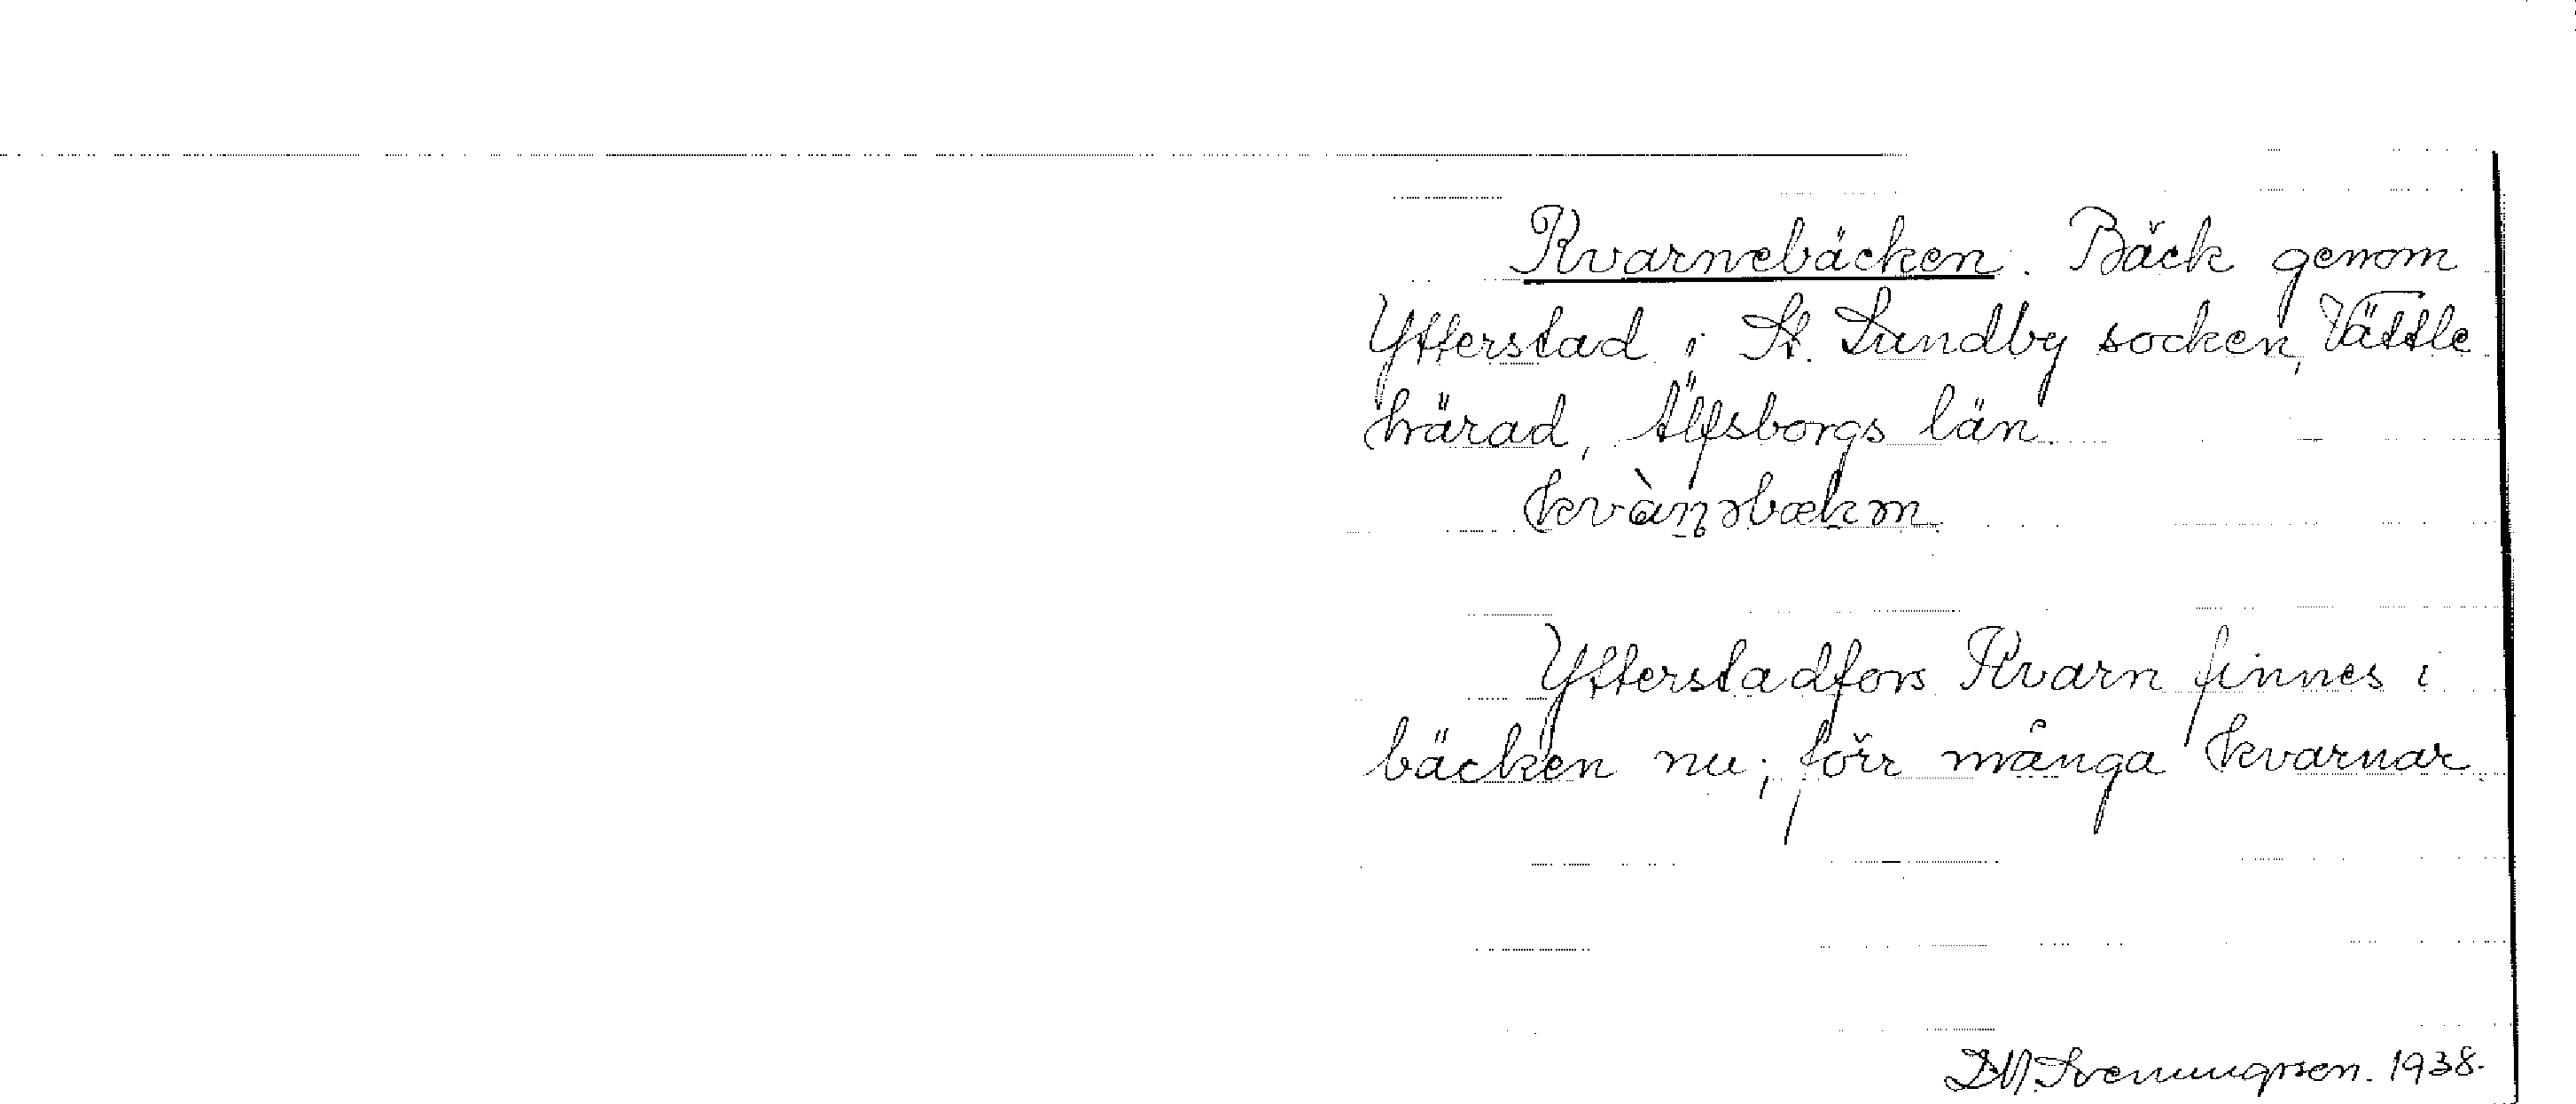 Kvarnebäcken. Bäck genom
Ytterstad i St. Lundby socken, Vättle
härad, Älfsborgs län.
kvàṇəbækən.
Ytterstadfors Kvarn finnes i
bäcken nu; förr många kvarnar.
Svenungsson. 1938.